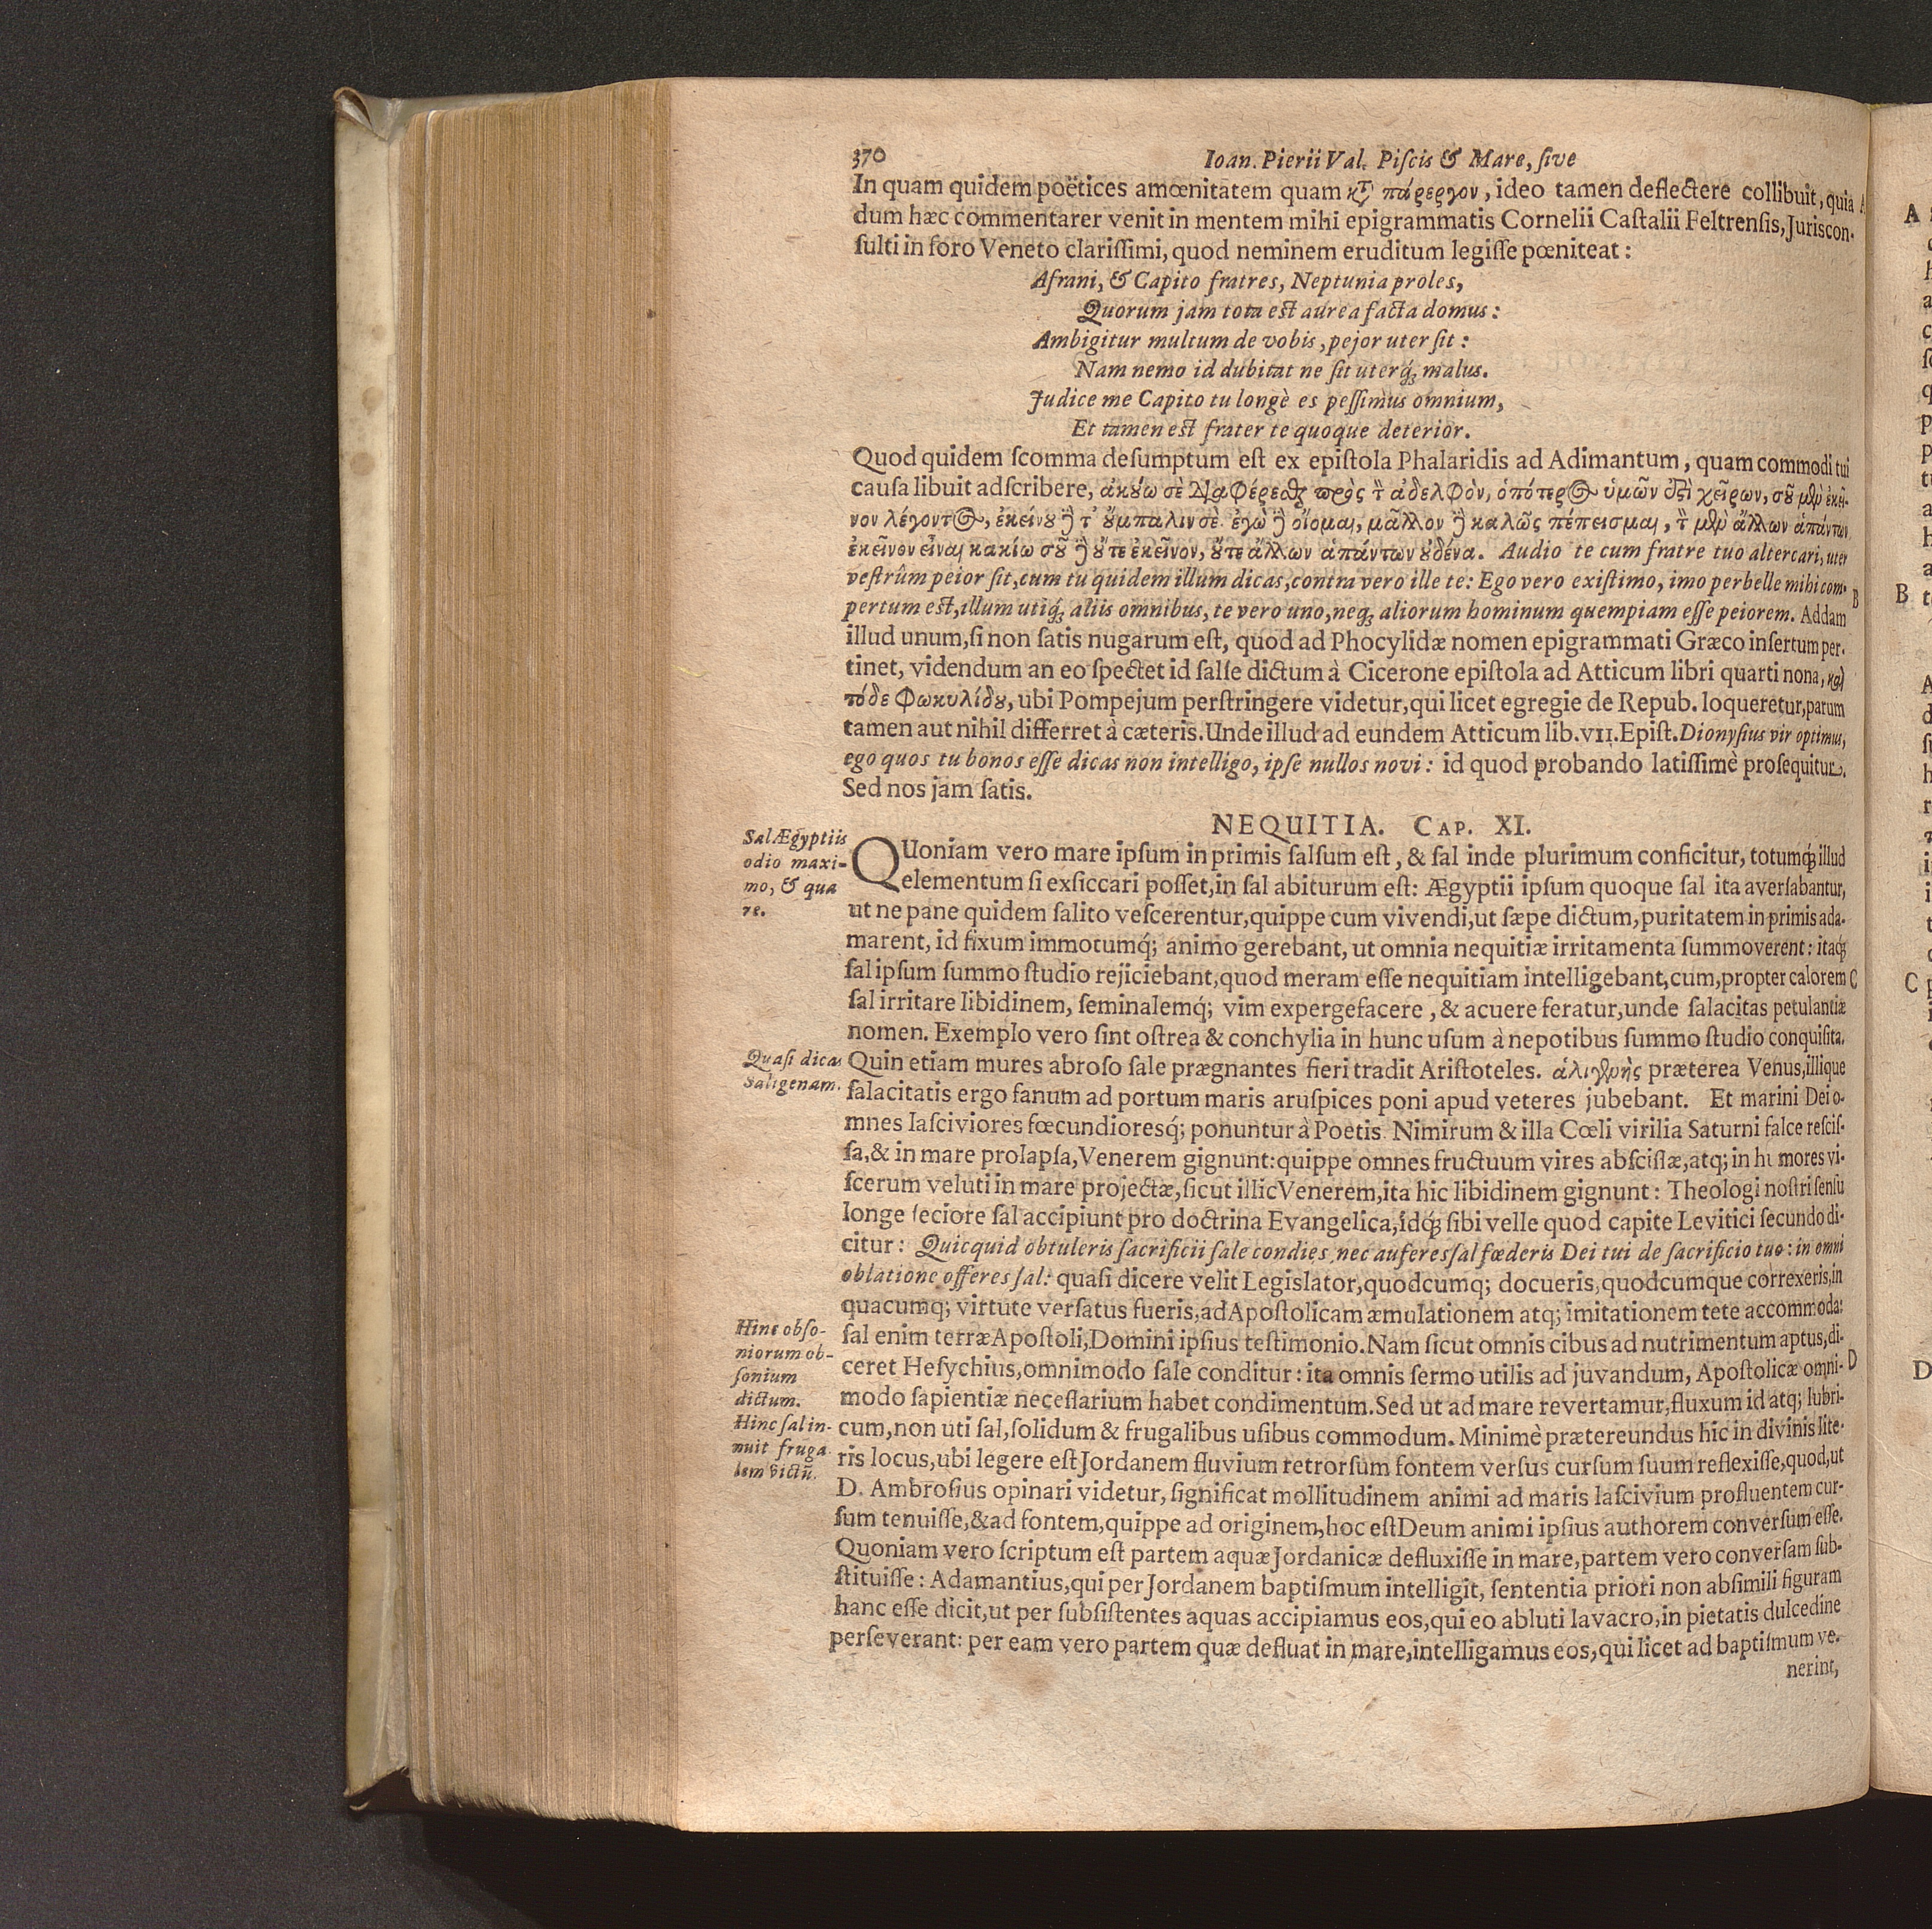 370
Ioan. Pierii Val. Piſcis & Mare, ſive
In quam quidem poëtices amœnitatem quam κτ̀ πάρεργον, ideo tamen deflectere collibuit, quia
dum hæc commentarer venit in mentem mihi epigrammatis Cornelii Caſtalii Feltrenſis, Juriscon-
ſulti in foro Veneto clariſſimi, quod neminem eruditum legiſſe pœniteat:
Afrani, & Capito fratres, Neptunia proles,
Quorum jam tota est aurea facta domus:
Ambigitur multum de vobis, pejor uter ſit:
Nam nemo id dubitat ne ſit uterq́; malus.
Judice me Capito tu longè es peſſimus omnium,
Et tamen est frater te quoque deterior.
Quod quidem ſcomma deſumptum eſt ex epiſtola Phalaridis ad Adimantum, quam commodi tui
cauſa libuit adſcribere, ἀκούω σὲ διαφέρεσθαι πρὸς τ̀ ἀδελφὸν, ὁπότερος ὑμῶν ἐστὶ χείρων, σοῦ μὲν ἐκεῖ-
νον λέγοντος, ἐκείνου ἢ τ' οὔμπαλιν σὲ. ἐγὼ ἢ οἴομαι, μᾶλλον ἢ καλῶς πέπεισμαι, τ̀ μὲν ἄλλων ἁπάντων
ἐκεῖνον εἶναι κακίω σοῦ ἢ οὔτε ἐκεῖνον, οὔτε ἄλλων ἁπάντων οὐδένα. Audio te cum fratre tuo altercari, uter
veſtrûm peior ſit, cum tu quidem illum dicas, contra vero ille te: Ego vero exiſtimo, imo perbelle mihi com-
pertum est, illum utiq́; aliis omnibus, te vero uno, neq́; aliorum hominum quempiam eſſe peiorem. Addam
illud unum, ſi non ſatis nugarum eſt, quod ad Phocylidæ nomen epigrammati Græco inſertum per-
tinet, videndum an eo ſpectet id ſalſe dictum à Cicerone epiſtola ad Atticum libri quarti nona, καὶ
τόδε Φωκυλίδου, ubi Pompejum perſtringere videtur, qui licet egregie de Repub. loqueretur, parum
tamen aut nihil differret à cæteris. Unde illud ad eundem Atticum lib. VII. Epiſt. Dionyſius vir optimus,
ego quos tu bonos eſſe dicas non intelligo, ipſe nullos novi: id quod probando latiſſimè proſequitur.
Sed nos jam ſatis.
NEQUITIA. CAP. XI.
Sal Ægyptiis
odio maxi-
mo, & qua
re.
QUoniam vero mare ipſum in primis ſalſum eſt, & ſal inde plurimum conficitur, totumq́; illud
elementum ſi exſiccari poſſet, in ſal abiturum eſt: Ægyptii ipſum quoque ſal ita averſabantur,
ut ne pane quidem ſalito veſcerentur, quippe cum vivendi, ut ſæpe dictum, puritatem in primis ada-
marent, id fixum immotumq́; animo gerebant, ut omnia nequitiæ irritamenta ſummoverent: itaq́;
ſal ipſum ſummo ſtudio rejiciebant, quod meram eſſe nequitiam intelligebant, cum, propter calorem
ſal irritare libidinem, ſeminalemq́; vim expergefacere, & acuere feratur, unde ſalacitas petulantiæ
nomen. Exemplo vero ſint oſtrea & conchylia in hunc uſum à nepotibus ſummo ſtudio conquiſita.
Quaſi dicas
Saligenam.
Quin etiam mures abroſo ſale prægnantes fieri tradit Ariſtoteles. ἁλιγενὴς præterea Venus, illique
ſalacitatis ergo fanum ad portum maris aruſpices poni apud veteres jubebant. Et marini Dei o-
mnes laſciviores fœcundioresq́; ponuntur à Poetis. Nimirum & illa Cœli virilia Saturni falce reſciſ-
ſa, & in mare prolapſa, Venerem gignunt: quippe omnes fructuum vires abſciſſæ, atq; in humores vi-
ſcerum veluti in mare projectæ, ſicut illic Venerem, ita hic libidinem gignunt: Theologi noſtri ſenſu
longe ſeciore ſal accipiunt pro doctrina Evangelica, idq́; ſibi velle quod capite Levitici ſecundo di-
citur: Quicquid obtuleris ſacrificii ſale condies, nec auferes ſal fœderis Dei tui de ſacrificio tuo: in omni
oblatione offeres ſal: quaſi dicere velit Legislator, quodcumq; docueris, quodcumque correxeris, in
quacumq; virtute verſatus fueris, ad Apoſtolicam æmulationem atq; imitationem tete accommoda:
Hinc obſo-
niorum ob-
ſonium
dictum.
Hinc ſal in-
nuit fruga
lem victũ.
ſal enim terræ Apoſtoli, Domini ipſius teſtimonio. Nam ſicut omnis cibus ad nutrimentum aptus, di-
ceret Heſychius, omnimodo ſale conditur: ita omnis ſermo utilis ad juvandum, Apoſtolicæ omni-
modo ſapientiæ neceſſarium habet condimentum. Sed ut ad mare revertamur, fluxum id atq; lubri-
cum, non uti ſal, ſolidum & frugalibus uſibus commodum. Minimè prætereundus hic in divinis lite-
ris locus, ubi legere eſt Jordanem fluvium retrorſum fontem verſus curſum ſuum reflexiſſe, quod, ut
D. Ambroſius opinari videtur, ſignificat mollitudinem animi ad maris laſcivium profluentem cur-
ſum tenuiſſe, & ad fontem, quippe ad originem, hoc eſt Deum animi ipſius authorem converſum eſſe.
Quoniam vero ſcriptum eſt partem aquæ Jordanicæ defluxiſſe in mare, partem vero converſam ſub-
ſtituiſſe: Adamantius, qui per Jordanem baptiſmum intelligit, ſententia priori non abſimili figuram
hanc eſſe dicit, ut per ſubſiſtentes aquas accipiamus eos, qui eo abluti lavacro, in pietatis dulcedine
perſeverant: per eam vero partem quæ defluat in mare, intelligamus eos, qui licet ad baptiſmum ve-
nerint,
A
B
C
D
A
B
C
D